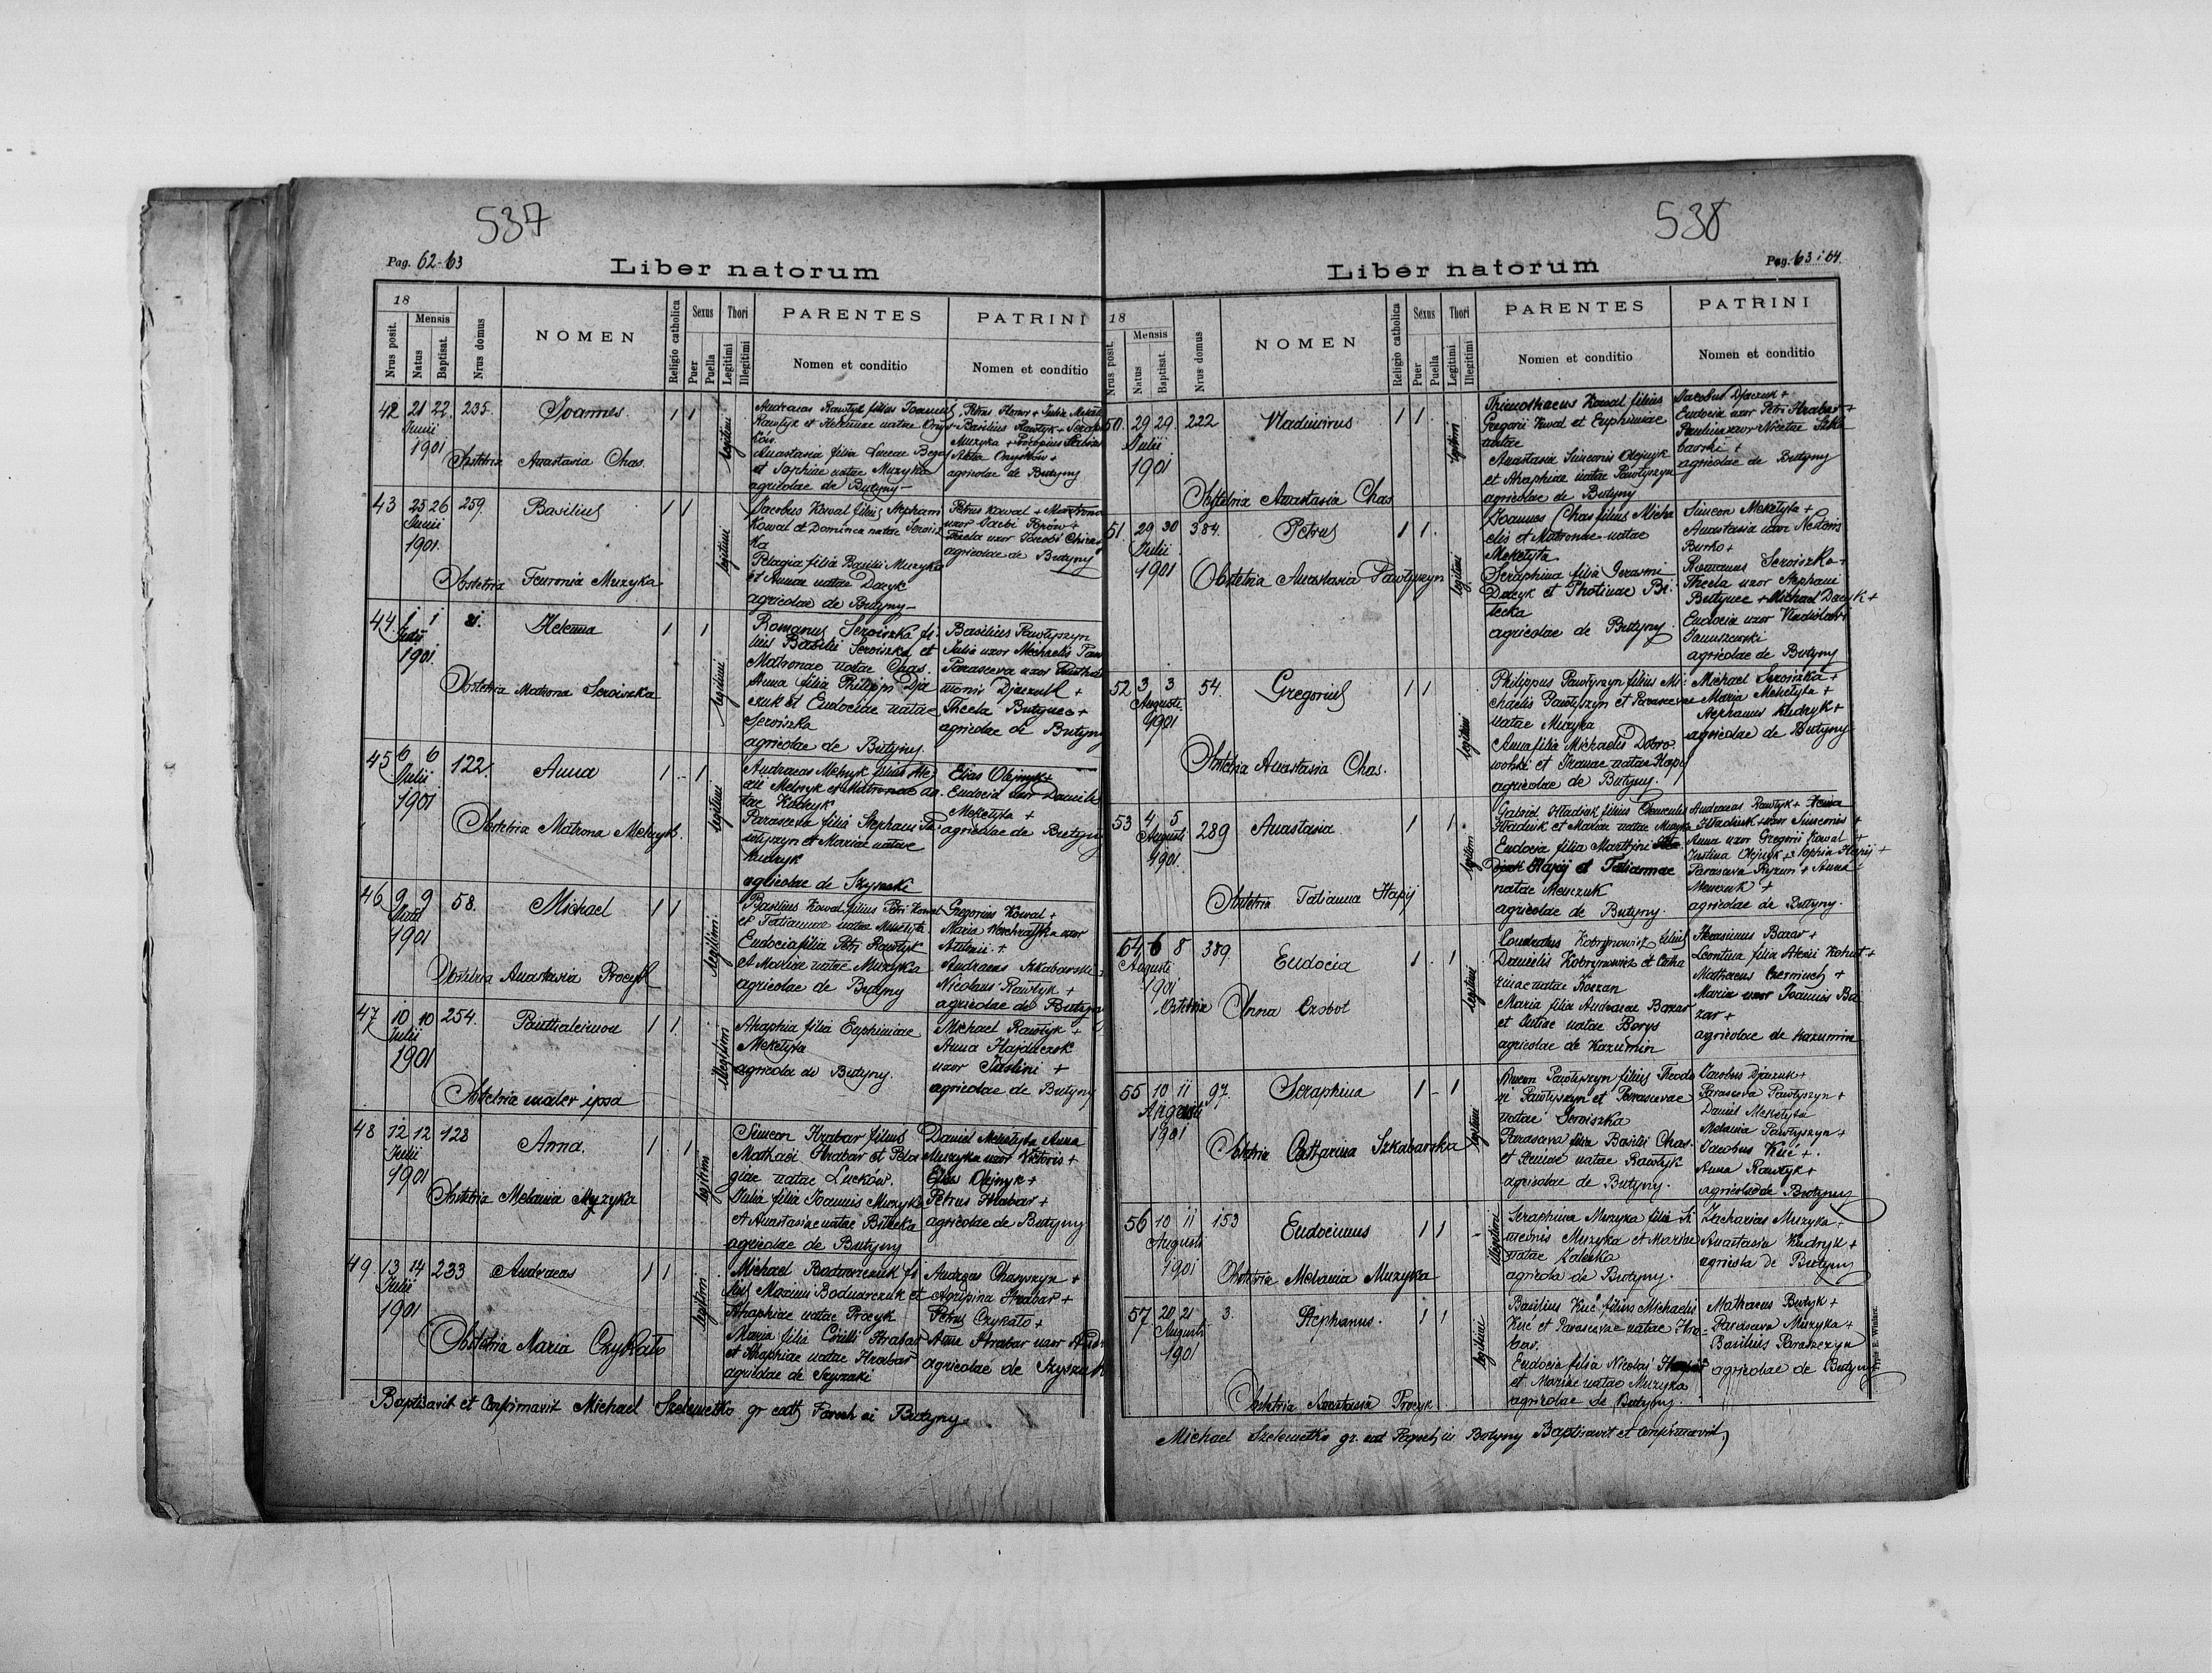 537
Pag. 62-63
Liber natorum
18
Nrus posit.
Mensis
Natus
Baptisat.
Nrus domus
NOMEN
Religio catholica
Sexus
Puer
Puella
Thori
Legitimi
Illegitimi
PARENTES
Nomen et conditio
PATRINI
Nomen et conditio
42 21 22. 235. Joannes. 1 1 legitimi
Junii
1901
Obstetrix Anastasia Chas.
Andraeas Rawłyk filius Joannis
Rawłyk et Helenae natae
Anastasia filia Lucae
et Sophiae natae Muzyka
agricolae de Butyny
Basilius Rawłyk +
Muzyka + Procopius
agricolae de Butyny
43 25 26 259. Basilius 1 1 legitimi
Junii
1901.
Obstetrix Fevronia Muzyka
Jacobus Kowal filius Stephani
Kowal et Dominica natae Serwisz
ka
Pelagia filia Basilii Muzyka
et Annae natae Dacyk
agricolae de Butyny
Petrus Kowal + Matrona
uxor Jacobi Popów +
Thecla uxor Jacobi
agricolae de Butyny
44. 1 1 Helena 1 1 legitimi
Julii
1901.
Obstetrix Matrona Serwiszka
Romanus Serwiszka fi
lius Basilii Serwiszka et
Matronae natae Chas.
Anna filia Philippi Dja
czuk et Eudociae natae
Serwiszka
agricolae de Butyny.
Basilius Pawłyszyn
Julia uxor Michaelis Paw
Parasceva uxor
Djaczuk +
Thecla Butynec +
agricolae de Butyny
45 6 6 122. Anna 1 1 legitimi
Julii
1901
Obstetrix Matrona Melnyk.
Andraeas Melnyk filius Ale
xii Melnyk et Matronae na
tae Kudryk
Parasceva filia Stephani Pa
włyszyn et Mariae natae
Kudryk
agricolae de Szyszaki
Elias Olejnyk +
Eudocia uxor Danielis
Mekełyta +
agricolae de Butyny
46 9 9 58. Michael 1 1 legitimi
Julii
1901
Obstetrix Anastasia Procyk
Basilius Kowal filius Petri Kowal
et Tatianna natae Mekełyta
Eudocia filia Petri Rawłyk
et Mariae natae Muzyka
agricolae de Butyny
Gregorius Kowal +
Maria uxor
Antonii +
Andraeas Szkabarski +
Nicolaus Rawłyk +
agricolae de Butyny
47 10 10 254. Panthaleimon 1 1. illegitimi
Julii
1901
Obstetrix mater ipsa
Ahaphia filia Euphimiae
Mekełyta
agricola de Butyny.
Michael Rawłyk +
Anna Hajduczok
uxor Justini +
agricolae de Butyny
48 12 12 128 Anna. 1. 1 legitimi
Julii
1901
Obstetrix Melania Muzyka
Simeon Hrabar filius
Mathaei Hrabar et Pela
giae natae Luckow.
Julia filia Joannis Muzyka
et Anastasiae natae Bilecka
agricolae de Butyny
Daniel Mekełyta Anna
Muzyka uxor Victoris +
Elias Olejnyk +
Petrus Hrabar +
agricolae de Butyny
49 13 14 233 Andraeas 1 1 legitimi
Julii
1901
Obstetrix Maria Czykało
Michael Bodnarczuk fi
lius Maximi Bodnarczuk et
Ahaphiae natae Procyk
Maria filia Cirilli Hrabar
et Ahaphiae natae Hrabar
agricolae de Szyszaki
Andreas Charyszyn +
Agripina Hrabar +
Petrus Czykało +
Anna Hrabar uxor
agricolae de Szyszaki
Baptisavit et Confirmavit Michael Szelemetko gr cath Paroch in Butyny.
538
Pag. 63 i 64.
Liber natorum
18
Nrus posit.
Mensis
Natus
Baptisat.
Nrus domus
NOMEN
Religio catholica
Sexus
Puer
Puella
Thori
Legitimi
Illegitimi
PARENTES
Nomen et conditio
PATRINI
Nomen et conditio
50. 29 29. 222 Vladimirus 1 1 legitimi
Julii
1901
Obstetrix Anastasia Chas
Thimotheus Kowal filius
Gregorii Kowal et Euphimiae
natae
Anastasia Simeonis Olejnyk
et Ahaphiae natae Pawłyszyn
agricolae de Butyny
Jacobus Djaczuk +
Eudocia uxor Petri Hrabar +
Paulina uxor Nicetae Szka
barski +
agricolae de Butyny
51. 29 30 384. Petrus 1 1. legitimi
Julii
1901
Obstetrix Anastasia Pawłyszyn
Joannes Chas filius Micha
elis et Matronae natae
Mekełyta
Seraphina filia Gerasmi
Dacyk et Photinae Bi
lecka
agricolae de Butyny.
Simeon Mekełyta +
Anastasia uxor Nestoris
Burko +
Romanus Serwiszka +
Thecla uxor Stephani
Butynec + Michael Dacyk +
Eudocia uxor Vladislavi
Januszewski
agricolae de Butyny
52 3 3 54. Gregorius 1 1 legitimi
Augusti.
1901
Obstetrix Anastasia Chas.
Philippus Pawłyszyn filius Mi
chaelis Pawłyszyn et Parascevae
natae Muzyka
Anna filia Michaelis Dobro
wolski et Irenae natae Hapij
agricolae de Butyny.
Michael Serwiszka +
Maria Mekełyta +
Stephanus Kudryk +
agricolae de Butyny
53 4 5 289 Anastasia 1 1. legitimi
Augusti
1901.
Obstetrix Tatianna Hapij
Gabriel Hładiuk filius
Hładiuk et Mariae natae Muzyka
Eudocia filia Martini
Hapij et Tatiannae
natae Menczuk
agricolae de Butyny.
Andraeas Rawłyk + Xenia
Hładiuk uxor Simeonis +
Anna uxor Gregorii Kowal +
Justina Olejnyk + Sophia Hapij +
Parasceva + Anna
Menczuk +
agricolae de Butyny.
54 6 8 389. Eudocia 1 1 legitimi
Augusti
1901
Obstetrix Anna Czobot
Condratus Kobrynowicz filius
Danielis Kobrynowicz et Catha
rinae natae Koczan
Maria filia Andraeae Bazar
et Justiae natae Borys
agricolae de Kazumin
Herasimus Bazar +
Leontina filia Alexii Kohut +
Mathaeus Czerniuch +
Maria uxor Joannis Ba
zar +
agricolae de Kazumin
55 10 11 97. Seraphina 1 - 1 legitimi
Augusti
1901
Obstetrix Catharina Szkabarska
Simeon Pawłyszyn filius Theodo
ri Pawłyszyn et Parascevae
natae Serwiszka
Parasceva filia Basilii Chas.
et Xeniae natae Rawłyk
agricolae de Butyny.
Jacobus Djaczuk +
Parasceva Pawłyszyn +
Daniel Mekełyta
Melania Pawłyszyn +
Jacobus Kuć +
Anna Rawłyk +
agricolae de Butyny
56 10 11 153 Eudocimus 1 1 illegitimi
Augusti
1901
Obstetrix Melania Muzyka
Seraphina Muzyka filia Si
meonis Muzyka et Mariae
natae Zaleska
agricola de Butyny.
Zacharias Muzyka +
Anastasia Kudryk +
agricola de Butyny
57 20 21 3. Stephanus. 1 1 legitimi
Augusti
1901
Obstetrix Anastasia Procyk
Basilius Kuć filius Michaelis
Kuć et Parascevae natae Hra
bar.
Eudocia filia Nicolai
et Mariae natae Muzyka
agricolae de Butyny.
Mathaeus Butyk +
Parasceva Muzyka +
Basilius Paraszczyn
agricolae de Butyny
Michael Szelemetko gr. cat Paroch in Butyny Baptisavit et confirmavit